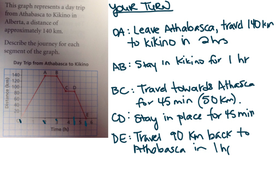 This graph represents a day trip
from Athabasca to Kikino in
Alberta, a distance of
approximately 140 km.
Describe the journey for each
segment of the graph.
Day Trip from Athabasca to Kikino
Distance (km)
Time (h)
YOUR TURN
OA: Leave Athabasca, travel 140 km
to Kikino in 2 hrs
AB: Stay in Kikino for 1 hr
BC: Travel towards
for 45 min (50 km).
CD: Stay in place for 45 min
DE: Travel 90 km back to
Athabasca in 1 hr